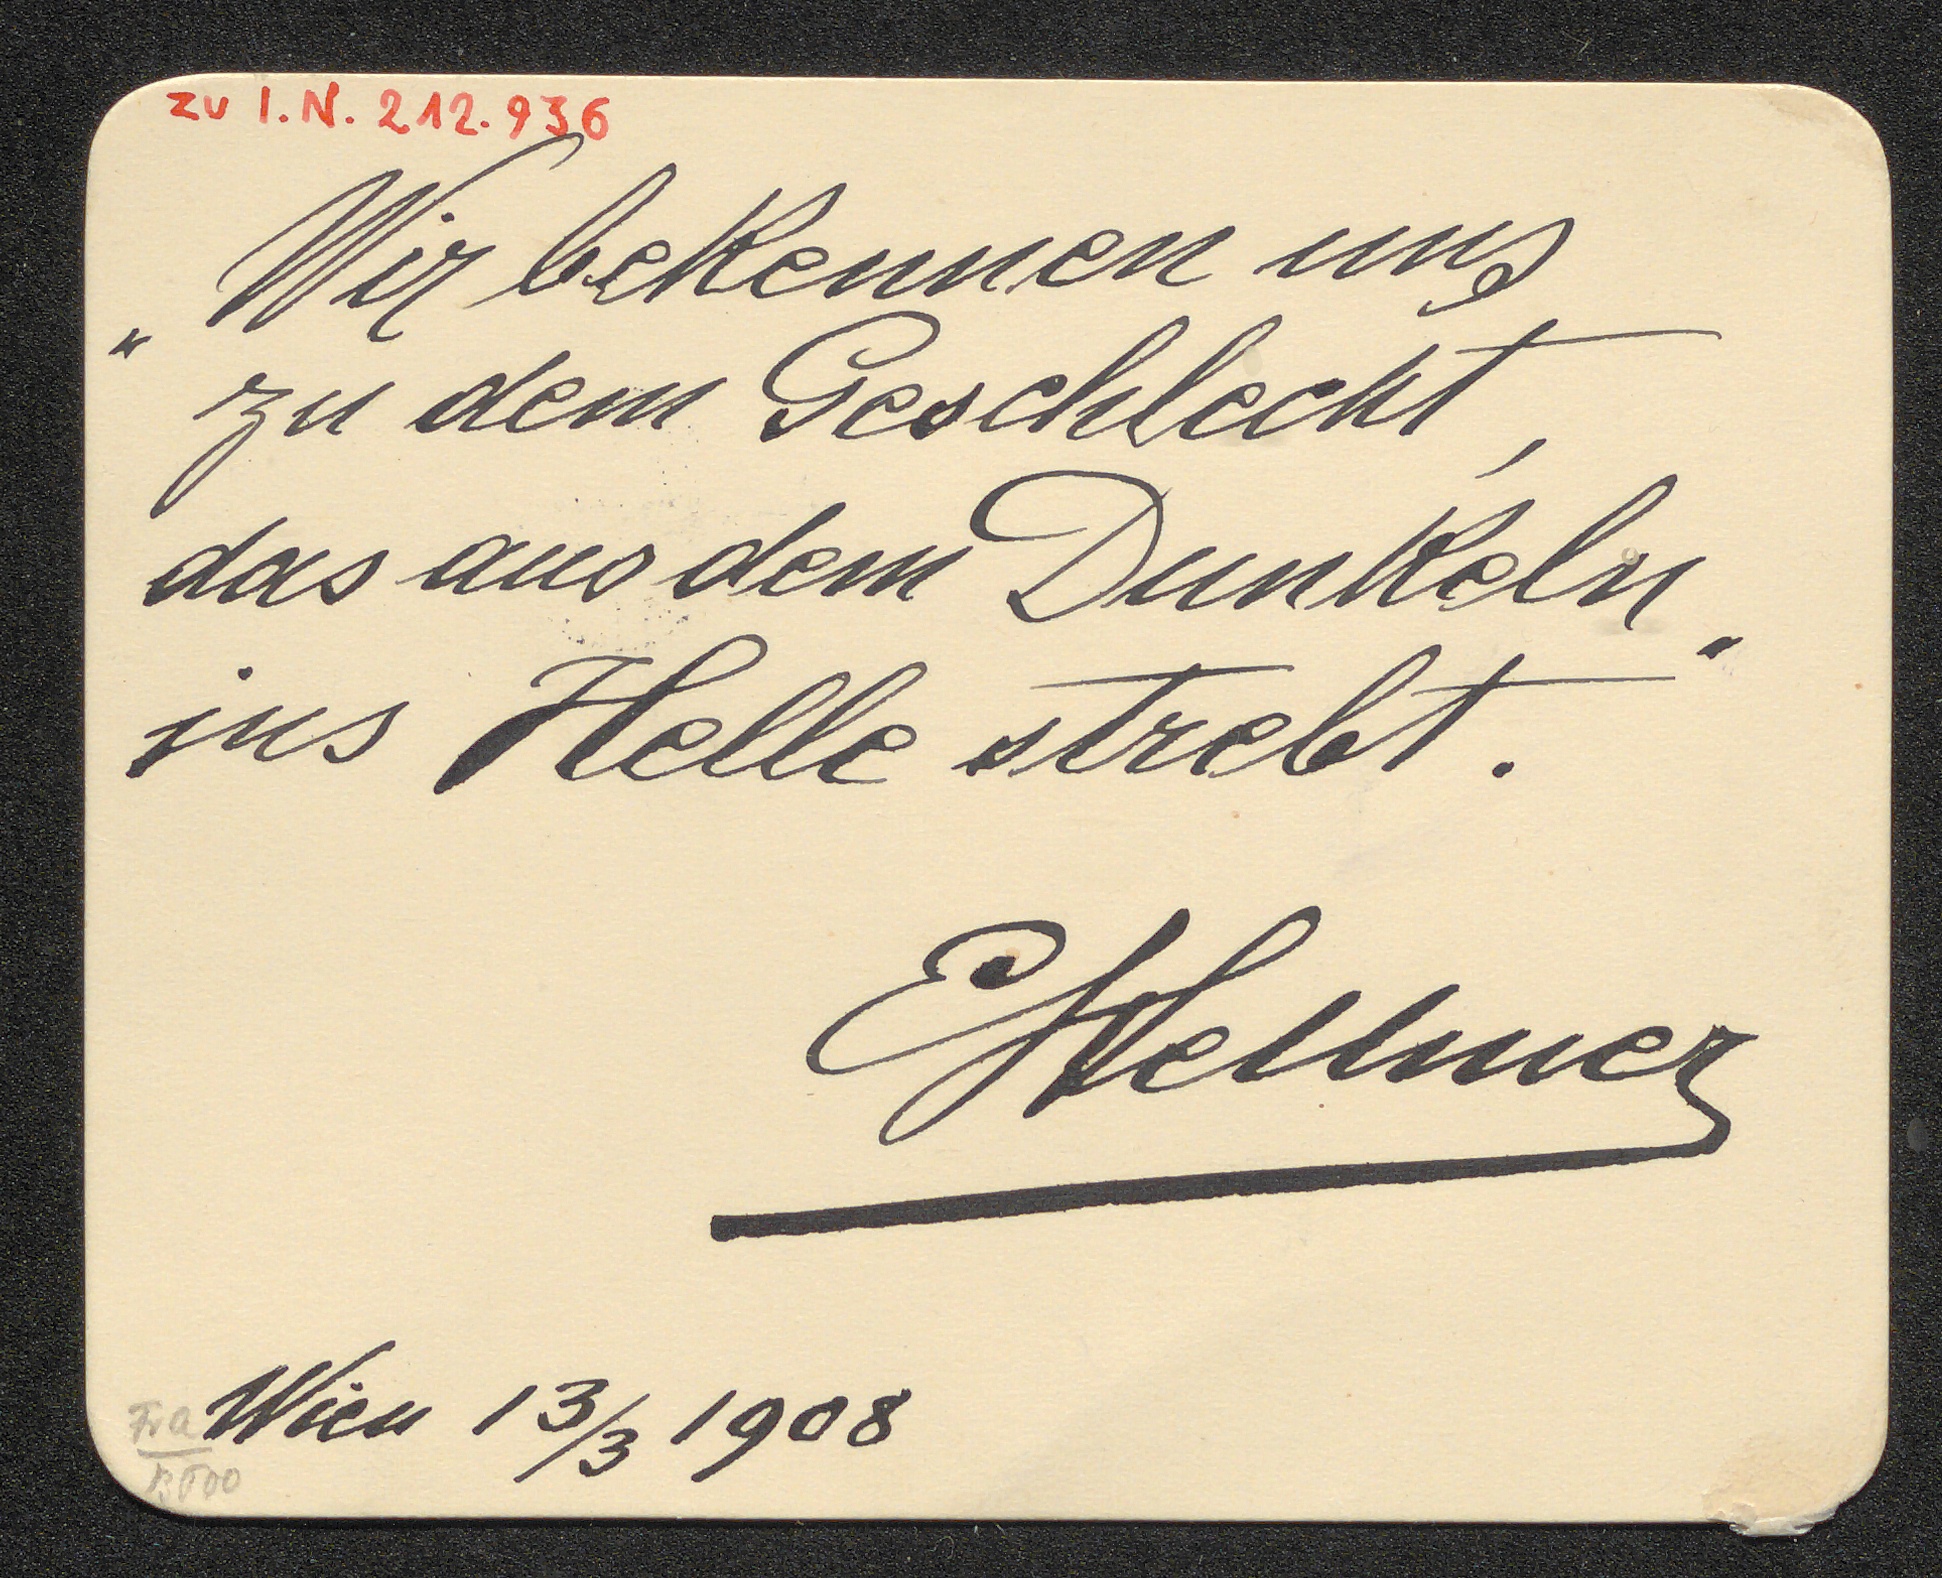 zu I.N. 212.936
„Wir bekennen uns
zu dem Geschlecht,
das aus dem Dunkeln
ins Helle strebt."
EHellmer
Wien 13/3 1908